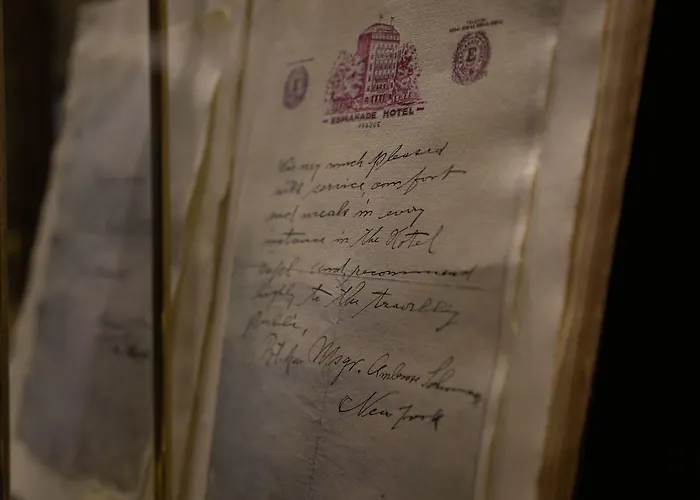 ESPLANADE HOTEL
PRAGUE
E
very much pleased
with service, comfort
and meals in every
instance in the Hotel
and recommend
highly to the travelling
public,
Msgr. Ambrose
New York